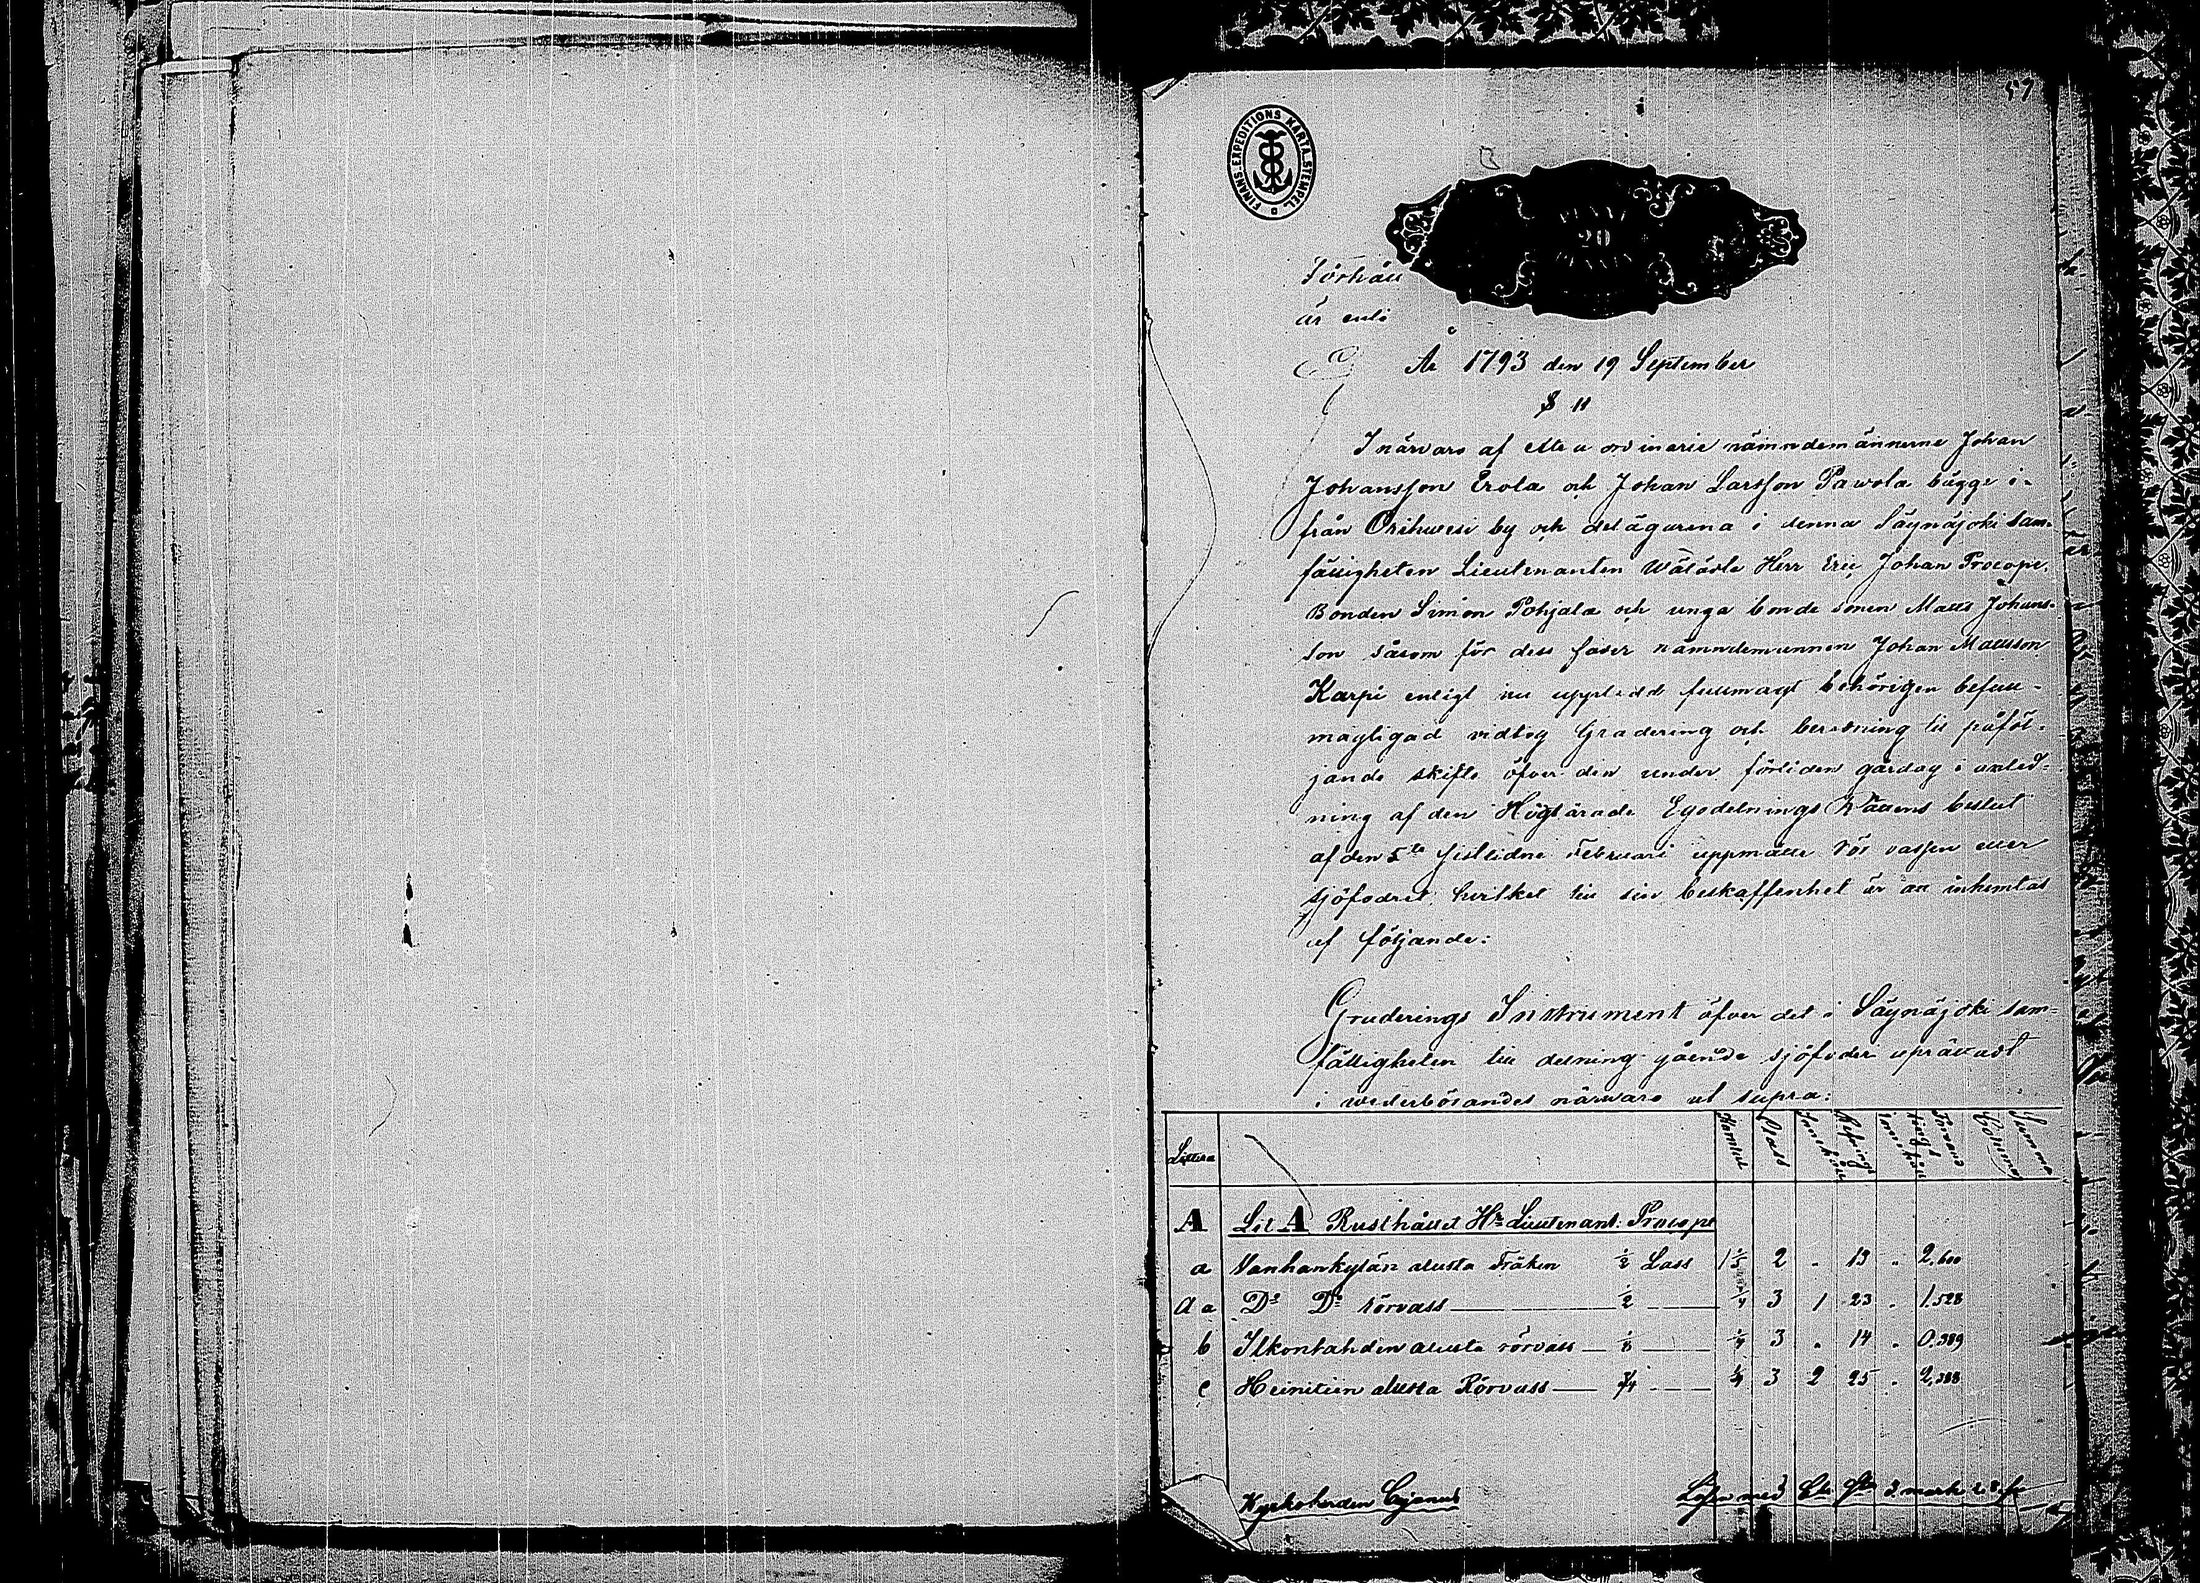 57
FINANS. EXPEDITIONS KARTA. STEMPEL.
PENNI
20
PENNIÄ
Förhåll
är enli
År 1793 den 19 September
§ 11
I närvaro af extra ordinerie nämndemännerne Johan
Johansson Erola och Johan Larsson Pawola bägge i-
från Orihwesi by och delägarena i denna Säynäjoki sam-
fälligheten Lieutenanten Wälädle Herr Eric Johan Procopé,
Bonden Simon Pohjala och unga bonde sonen Matts Johans-
son såsom för dess fader nämndemannen Johan Mattsson
Karpi enligt nu uppvedd fullmagt behörigen befull-
mägtigad vidtog Gradering och beredning till påföl-
jande skifte öfver den under förliden gårdag i anled-
ning af den Höglärade Egodelnings Rättens beslut
af den 5te sistlidne Februari uppmätte rör vassen eller
sjöfodret, hvilket till sin beskaffenhet är att inhemtas
af följande:
Graderings Instrument öfver det i Säynäjoki sam-
fälligheten till delning gående sjöfoder uprättadt
i wederbörandes närwaro ut supra:
Littera
Summa
A Lit A Rusthållet Hr Lieutenant: Procopé
a Vanhankylän alusta Fräken 1/2 Lass 2 13 2.600
a a Do Do rörvass 1/2 1/4 3 1 23 1.528
b Ilkontahden alusta rörvass 1/8 1/4 3 14 0.389
c Heinitien alusta Rörvass 3/4 1/4 3 2 25 2.388
Kyrkoherden Cajanus
Lösen med 3 mark 28 p